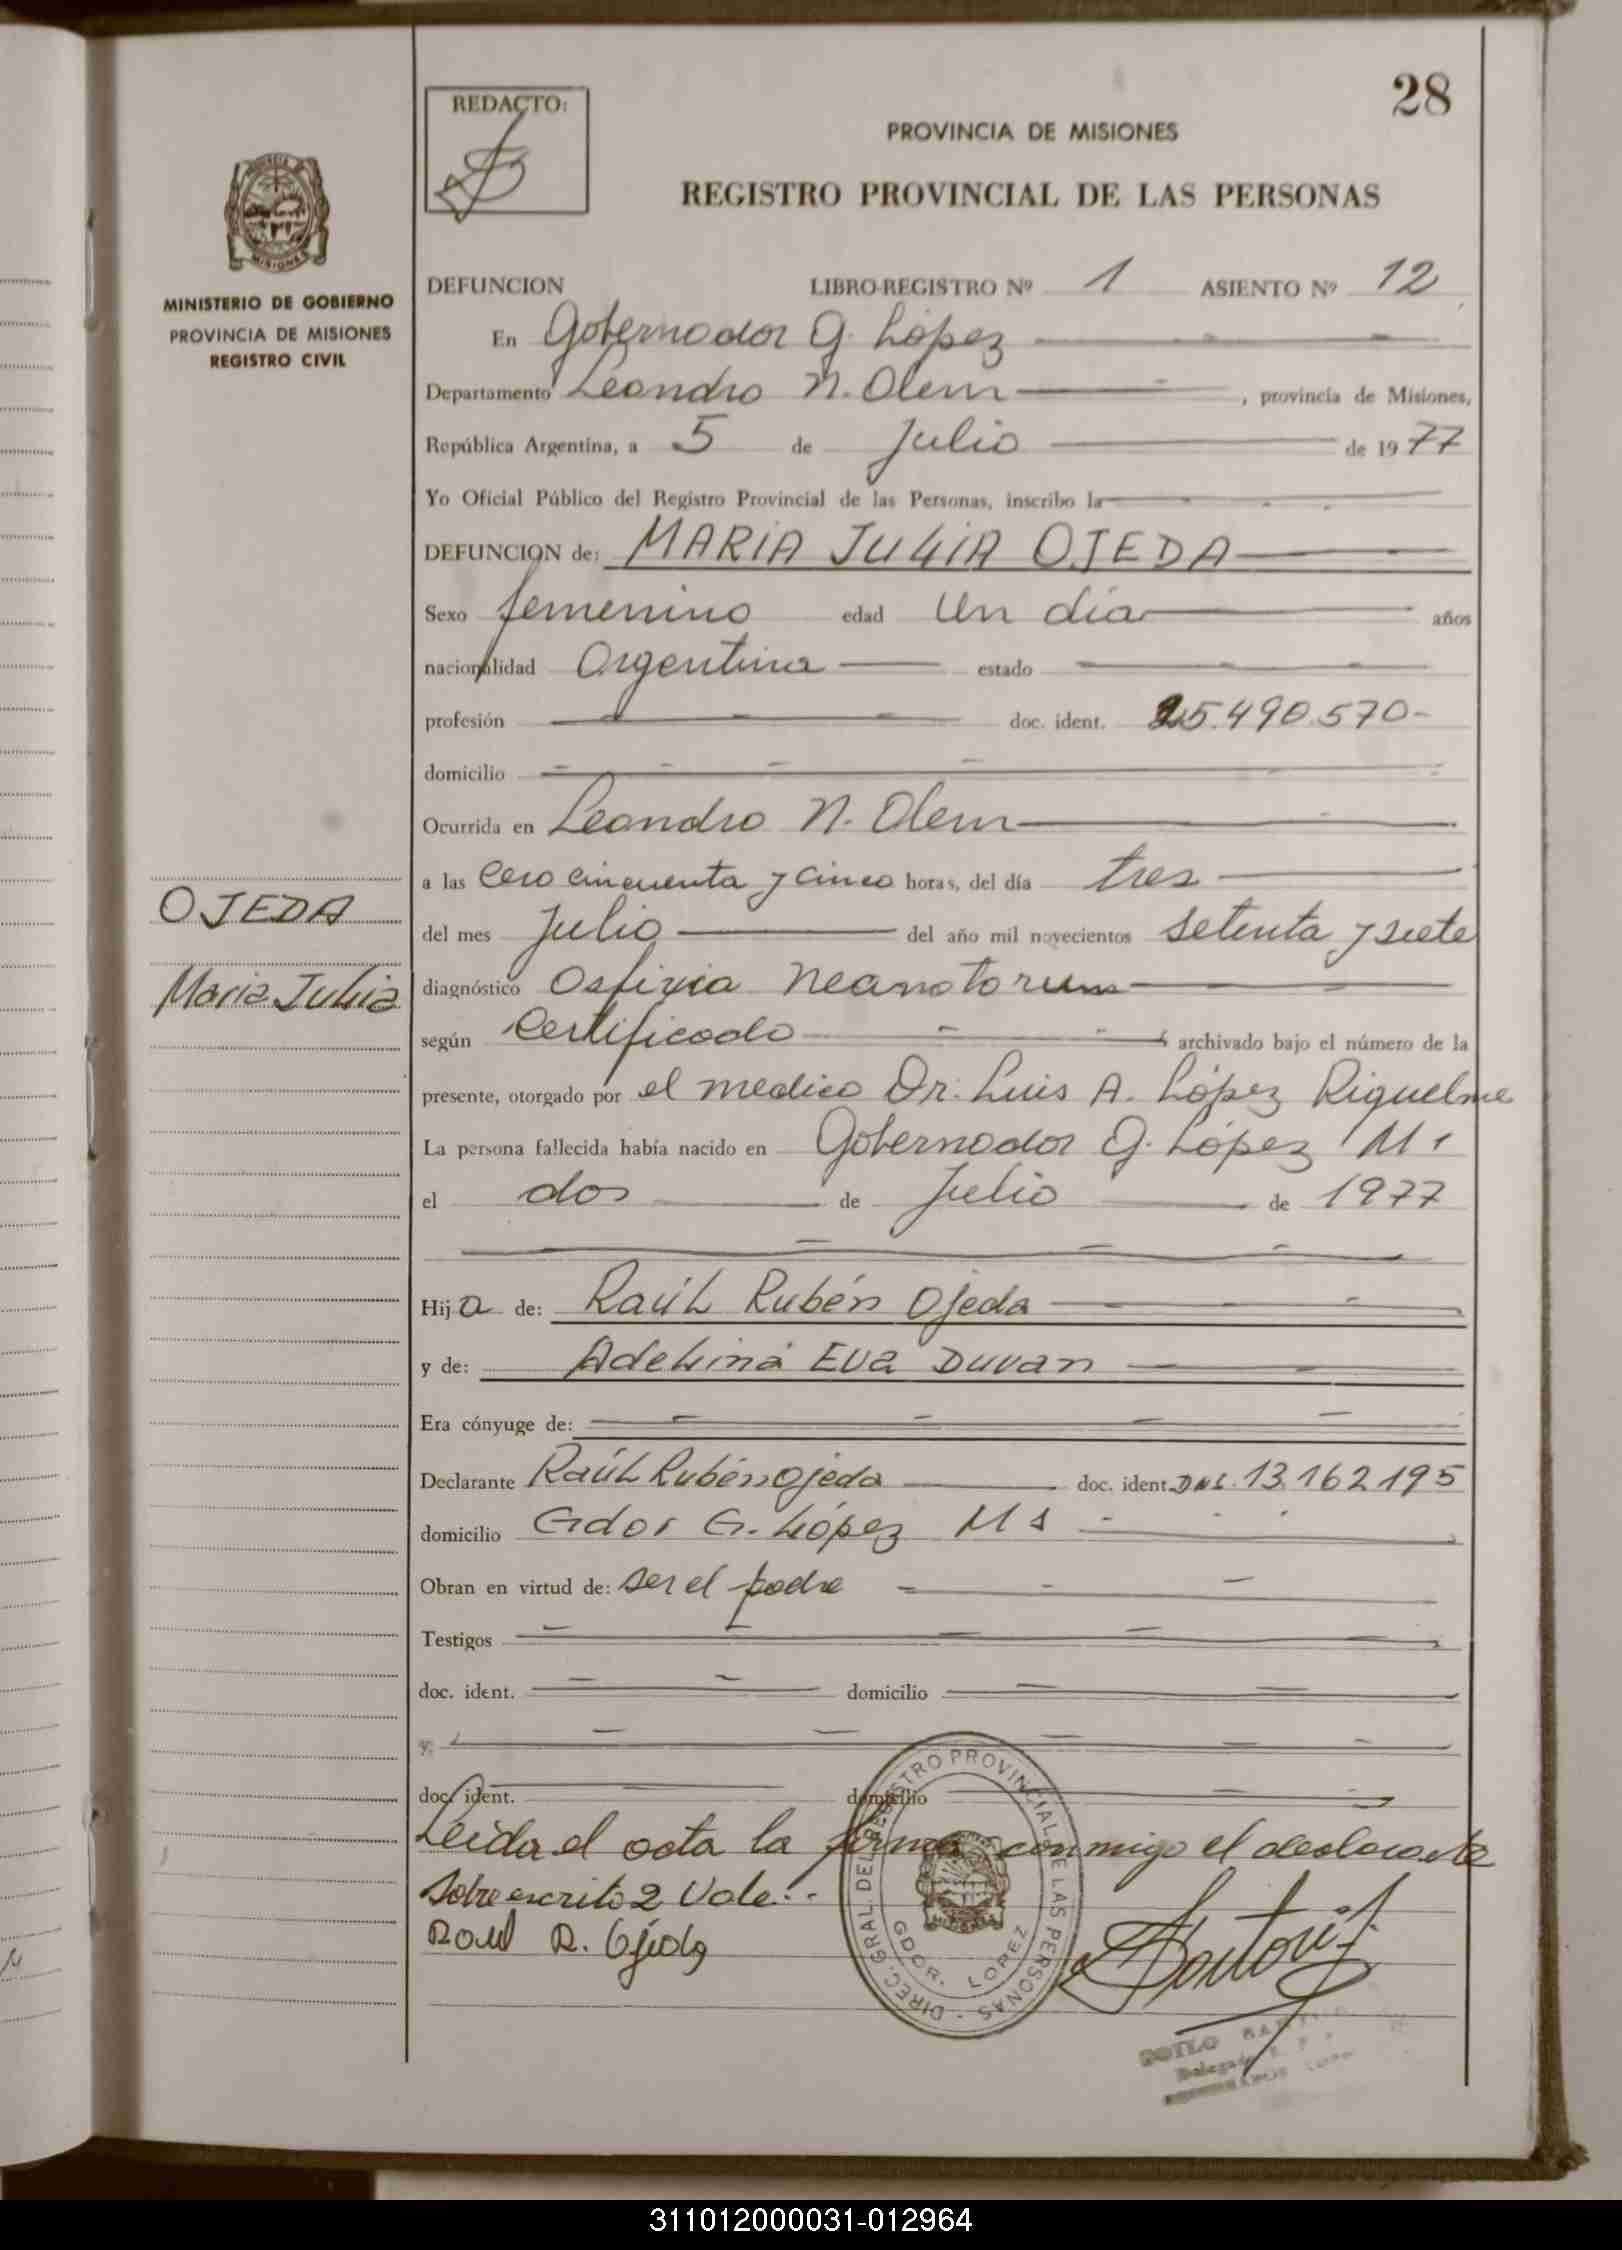 28
REDACTO:
PROVINCIA DE MISIONES
REGISTRO PROVINCIAL DE LAS PERSONAS
MINISTERIO DE GOBIERNO
PROVINCIA DE MISIONES
REGISTRO CIVIL
DEFUNCION LIBRO-REGISTRO Nº 1 ASIENTO Nº 12
En Gobernador G. López
Departamento Leandro N. Alem, provincia de Misiones,
República Argentina, a 5 de Julio de 1977
Yo Oficial Público del Registro Provincial de las Personas, inscribo la
DEFUNCION de: MARIA JULIA OJEDA
Sexo femenino edad Un día años
nacionalidad Argentina estado
profesión doc. ident. 25.490.570-
domicilio
Ocurrida en Leandro N. Alem
a las Cero cincuenta y cinco horas, del día tres
OJEDA
del mes Julio del año mil novecientos setenta y siete
Maria Julia
diagnóstico Asfixia Neanatorum
según Certificado archivado bajo el número de la
presente, otorgado por el medico Dr. Luis A. López Riquelme
La persona fallecida había nacido en Gobernador G. López Ms
el dos de Julio de 1977
Hija de: Raúl Rubén Ojeda
y de: Adelina Eva Duvan
Era cónyuge de:
Declarante Raúl Rubén Ojeda doc. ident. DNI. 13.162.195
domicilio Gdor G. López Ms
Obran en virtud de: ser el padre
Testigos
doc. ident. domicilio
y:
doc. ident. domicilio
Leida el acta la firma conmigo el declarante
Sobre escrito 2 Vale.
Raul R. Ojeda
DIREC. GRAL. DEL REGISTRO PROVINCIAL DE LAS PERSONAS -
MISIONES
GDOR. LOPEZ
311012000031-012964